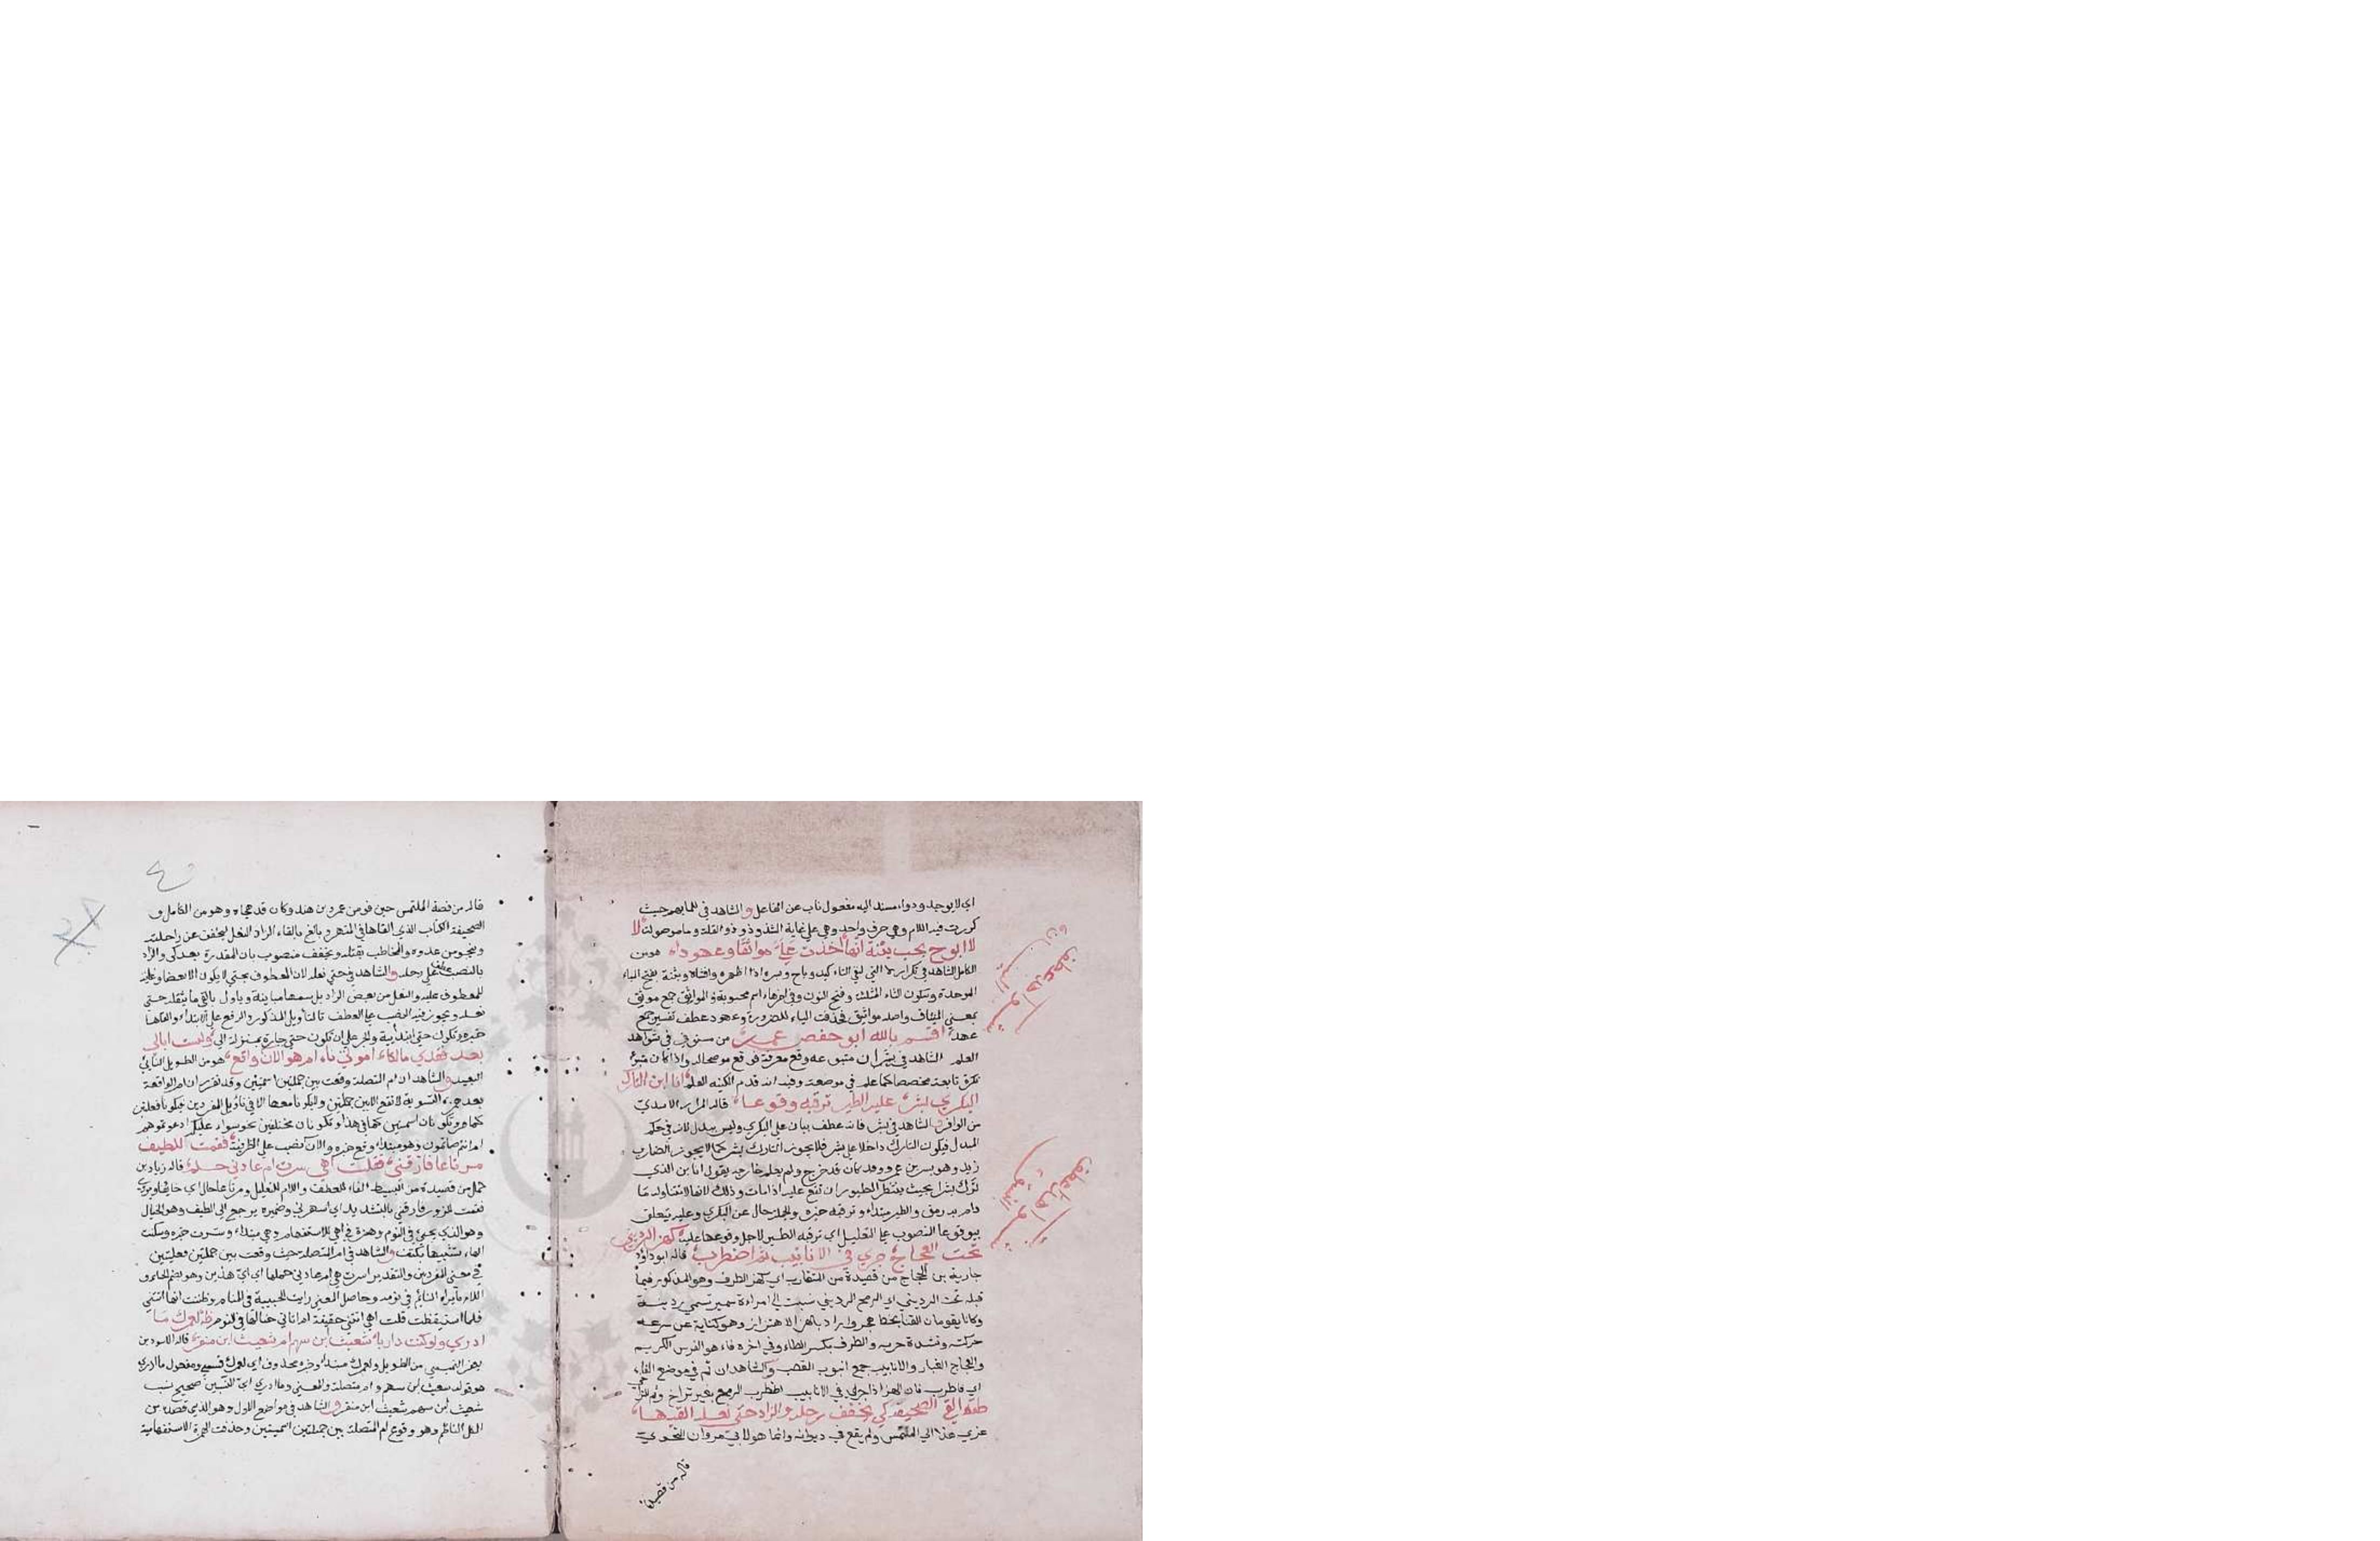 اي لا يوجد ودواء مسند اليه مفعول ناب عن الفاعل والشاهد في للما بهم حيث
كررت فيه اللام وهي حرف واحد وهي علي غاية الشذوذ وذو القلة وما موصولة لا
لا ابوح بحب بثنة انها اخذت علي مواثقا وعهودا هو من
الكامل الشاهد في تكرار لا التي لنفي التاكيد وباح وسره اذا اظهره وافشاه وبثنة بفتح الباء
الموحدة وسكون الثاء المثلثة وفتح النون وفي اخرها هاء اسم محبوبة والمواثق جمع موثق
بمعني الميثاق واصله مواثيق فحذفت الياء للضرورة وعهود عطف تفسير جمع
عهد اقسم بالله ابو حفص عمر من مستوفي في شواهد
العلم الشاهد في
نكرة تابعة مخصصا كما علم في موضعه وفيه انه قدم الكنية العلم انا ابن التارك
البكري بشر عليه الطير ترقبه وقوعا قاله المرار الاسدي
من الوافر الشاهد في بشر فانه عطف بيان علي البكري وليس ببدل لانه في حكم
المبدل فيكون التارك داخلا علي بشر فلا يجوز التارك بشر كما لا يجوز الضارب
زيد وهو بشر بن عمرو وقد كان قد جرح ولم يعلم جارحه يقول انا ابن الذي
ترك بشرا بحيث ينتظر الطيور ان تقع عليه اذا مات وذلك لانها لا تتناوله ما
دام به رمق والطير مبتدا وترقبه خبره والجملة حال عن البكري وعليه يتعلق
بوقوعا المنصوب علي التعليل اي ترقبه الطير لاجل وقوعها عليه كهز الرديني
تحت العجاج جري في الانابيب ثم اضطرب قاله ابو داؤد
جارية بن الحجاج من قصيدة من المتقارب اي كهز الطرف وهو المذكور فيما
قبله تحت الرديني اي الرمح الرديني نسبت الي امراءة سمهر تسمي ردينة
وكانا يقومان القنا بخط هجر واراد بالهز الاهتزاز وهو كناية عن سرعة
حركته وشدة جريه والطرف بكسر الطاء وفي اخره فاء هو الفرس الكريم
والعجاج الغبار والانابيب جمع انبوب القصب والشاهد ان ثم في موضع الفاء
اي فاضطرب فان الهز اذا جري في الانابيب اضطرب الرمح بغير تراخ ولم
القي الصحيفة كي يخفف رحله والزاد حتي نعله القيها
عزي هذا الي الملتمس ولم يقع في ديوانه وانما هو لابي مروان النحوي
قاله من قصة
شواهد عطف
البيان
شواهد عطف
النسق
قاله من قصة الملتمس حين فر من عمرو بن هند وكان قد هجاه وهو من الكامل و
الصحيفة الكتاب الذي القاها في النهر وبالغ بالقاء الزاد النعل ليخفف عن راحلته
وينجو من عدوه والمخاطب بقتله ويخفف منصوب بان المقدرة بعد كي والزاد
بالنصب عطف علي رحله والشاهد في حتي نعله لان المعطوف بحتي لا يكون الا بعضا وغاية
للمعطوف عليه والنعل من بعض الزاد بل بينهما مباينة وياول بالقي ما يثقله حتي
نعله ويجوز فيه النصب علي العطف بالتأويل المذكور والرفع علي الابتداء والقاها
خبره وتكون حتي ابتدائية والجر علي ان تكون حتي جارة بمنزلة الي ولست ابالي
بعد فقدي مالكا اموتي ناء ام هو الان واقع هو من الطويل النائي
البعيد والشاهد ان ام المتصلة وقعت بين جملتين اسميتين وقد تقرر ان ام الواقعة
بعد همزة التسوية لا تقع الا بين جملتين ولا يكونا معها الا في تأويل المفردين فيكونا فعليتين
كما مر وتكونان اسميتين كما في هذا وتكونان مختلفتين نحو سواء عليكم ادعوتموهم
ام انتم صامتون وهو مبتدا واقع خبره والآن نصب علي الظرفية فقمت للطيف
مرتاعا فارقني فقلت اهي سرت ام عادني حلم قاله زياد بن
حمل من قصيدة من البسيط الفاء للعطف واللام للتعليل ومرتاعا حال اي خايفا ويروي
فقمت للزور فارقني بالتشديد اي اسهرني وضميره يرجع الي الطيف وهو الخيال
وهو الذي يجيء في النوم وهمزة في اهي للاستفهام وهي مبتدا وسرت خبره وسكنت
الهاء تشبيها بكتف والشاهد في ام المتصلة حيث وقعت بين جملتين فعليتين
في معني المفردين والتقدير اسرت هي ام عادني حملها اي اي هذين وهو بضم الحاء و
اللام ما يراه النائم في نومه وحاصل المعني رايت الحبيبة في المنام وظننت انها اتتني
فلما استيقظت قلت اهي اتتني حقيقة ام اتاني خيالها في النوم لعمرك ما
ادري ولو كنت داريا شعيث ابن سهم ام شعيث ابن منقر قاله الاسود بن
يعفر التميمي من الطويل ولعمرك مبتدا وخبره محذوف اي لعمرك قسمي ومفعول ما ادري
هو قوله شعيث ابن سهم وام متصلة والمعني وما ادري اي النسبين صحيح نسب
شعيث ابن سهم شعيث ابن منقر والشاهد في مواضع الاول وهو الذي قصده بن
الناظم وهو وقوع ام المتصلة بين جملتين اسميتين وحذفت الهمزة الاستفهامية